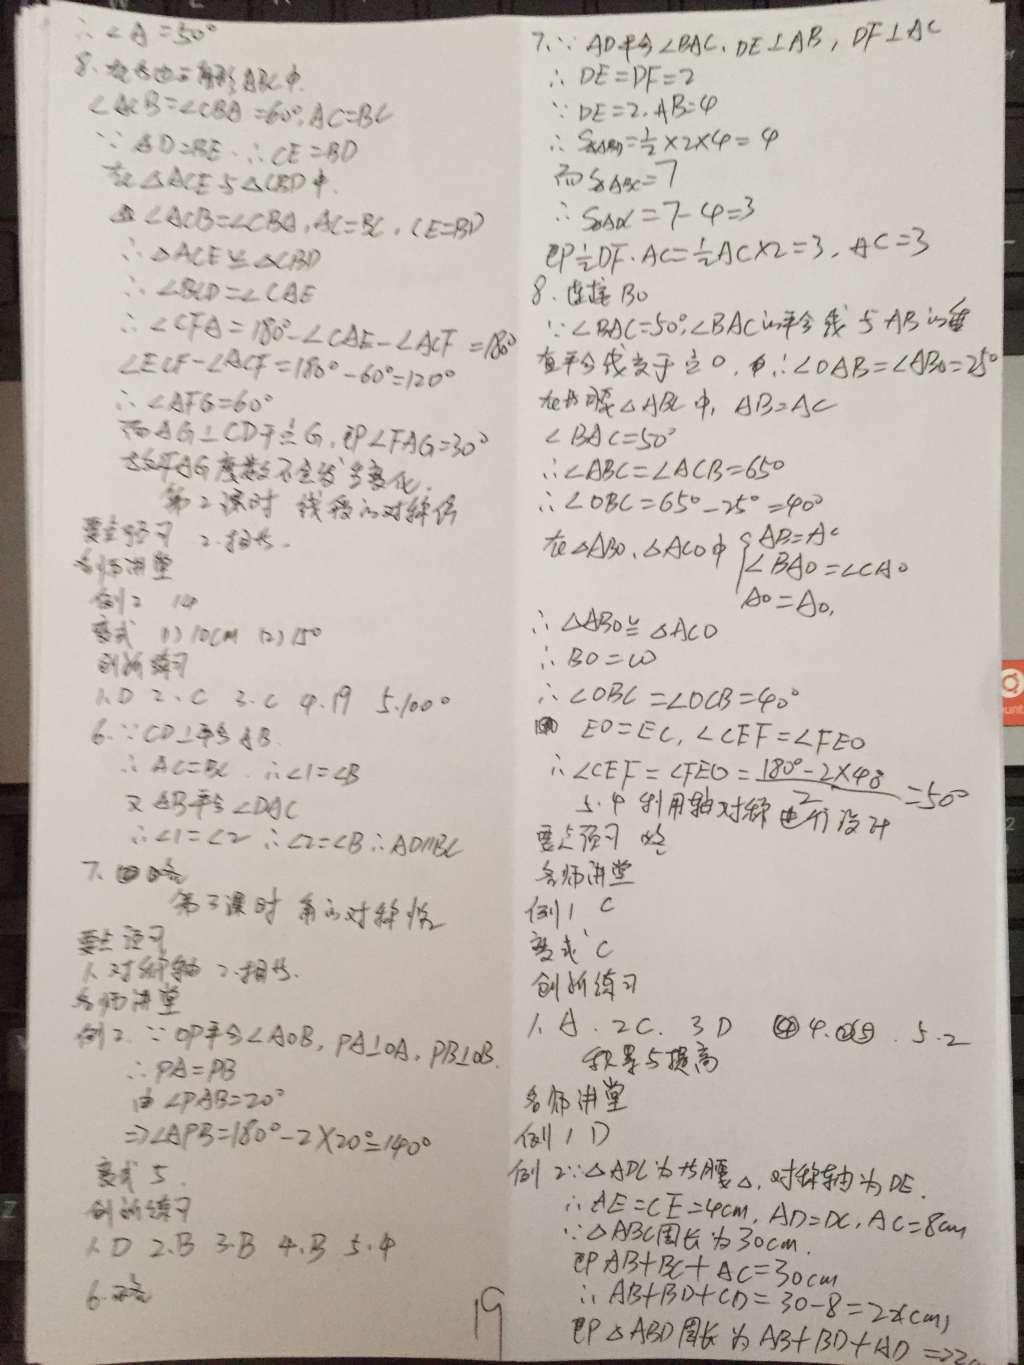 ∴∠A=50°
8.在等边三角形ABC中.
∠ACB=∠CBA=60°,AC=BC
∵BD=BE.∴CE=BD
在△ACE与△CBD中.
∠ACB=∠CBA,AC=BC,CE=BD
∴△ACE≌△CBD
∴∠BCD=∠CAE
∴∠CFA=180°-∠CAE-∠ACF=180°
∠ECF-∠ACF=180°-60°=120°
∴∠AFG=60°
而AG⊥CD于点G,即∠FAG=30°
故FAG度数不会发生变化.
第2课时 线段的对称性
要点预习 2.相等.
名师讲堂
例2 14
变式 (1)10cm (2)15°
创新练习
1.D 2.C 3.C 4.19 5.100°
6.∵CD⊥平分AB.
∴AC=BC.∴∠1=∠B
又AB平分∠DAC
∴∠1=∠2∴∠2=∠B∴AD∥BC
7.略
第3课时 角的对称性
要点预习
1.对称轴 2.相等.
名师讲堂
例2.∵OP平分∠AOB,PA⊥OA,PB⊥OB.
∴PA=PB
由∠PAB=20°
⇒∠APB=180°-2×20°=140°
变式 5.
创新练习
1.D 2.B 3.B 4.B 5.4
6.略
19
7.∵AD平分∠BAC,DE⊥AB,DF⊥AC
∴DE=DF=2
∵DE=2.AB=4
∴S△ABD=½×2×4=4
而S△ABC=7
∴S△ADC=7-4=3
即½DF·AC=½AC×2=3,AC=3
8.连接BO
∵∠BAC=50°,∠BAC的平分线与AB的垂
直平分线交于点O,∴∠OAB=∠ABO=25°
在等腰△ABC中,AB=AC
∠BAC=50°
∴∠ABC=∠ACB=65°
∴∠OBC=65°-25°=40°
在△ABO、△ACO中{AB=AC
∠BAO=∠CAO
AO=AO,
∴△ABO≌△ACO
∴BO=CO
∴∠OBC=∠OCB=40°
EO=EC,∠CEF=∠FEO
∴∠CEF=∠FEO=180°-2×40/2=50°
5.4 利用轴对称进行设计
要点预习 略
名师讲堂
例1 C
变式 C
创新练习
1.A.2C.3D 4.②⑤.5.2
积累与提高
名师讲堂
例1 D
例2∵△ADC为等腰△,对称轴为DE.
∴AE=CE=4cm,AD=DC,AC=8cm
∵△ABC周长为30cm.
即AB+BC+AC=30cm
∴AB+BD+CD=30-8=22(cm)
即△ABD周长为AB+BD+AD=22cm